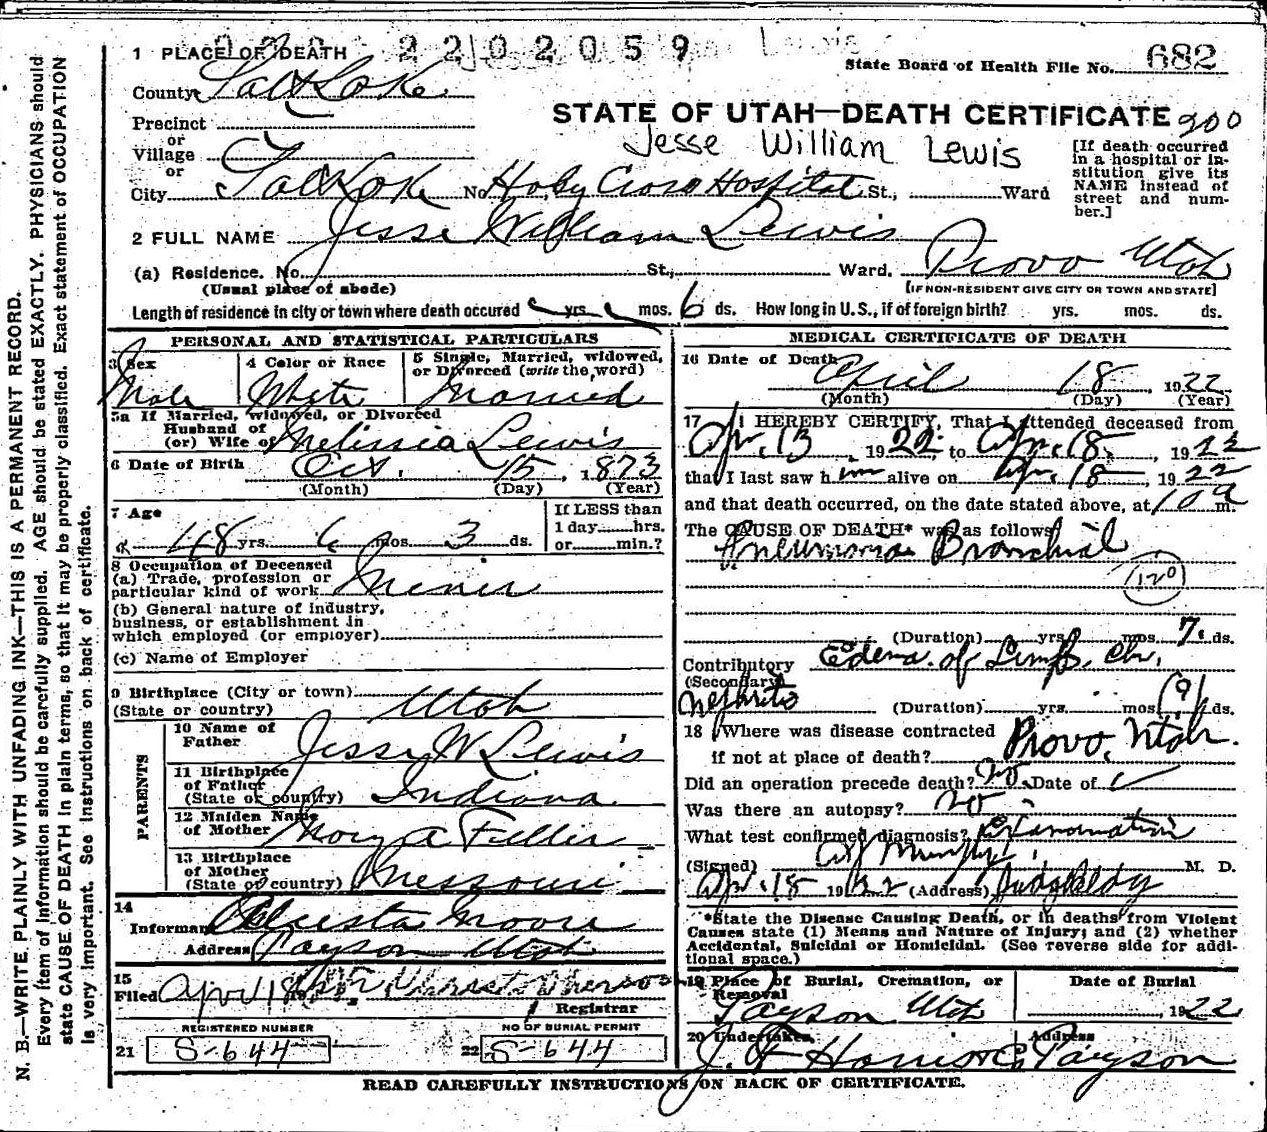 1 PLACE OF DEATH 2202059 Lewis
State Board of Health File No. 682
County Salt Lake
STATE OF UTAH—DEATH CERTIFICATE 900
Precinct
or
Village
or
City Salt Lake No. Holy Cross Hospital St., Ward
Jesse William Lewis
[If death occurred in a hospital or institution give its NAME instead of street and number.]
2 FULL NAME Jesse William Lewis
(a) Residence. No. St., Ward. Provo Utah
(Usual place of abode) [IF NON-RESIDENT GIVE CITY OR TOWN AND STATE]
Length of residence in city or town where death occured yrs. mos. 6 ds. How long in U.S., if of foreign birth? yrs. mos. ds.
PERSONAL AND STATISTICAL PARTICULARS
3 Sex Male
4 Color or Race White
5 Single, Married, widowed, or Divorced (write the word) Married
5a If Married, widowed, or Divorced
Husband of
(or) Wife of Melissia Lewis
6 Date of Birth Oct. 15, 1873
(Month) (Day) (Year)
7 Age 48 yrs. 6 mos. 3 ds.
If LESS than
1 day hrs.
or min.?
8 Occupation of Deceased
(a) Trade, profession or
particular kind of work Miner
(b) General nature of industry,
business, or establishment in
which employed (or employer)
(c) Name of Employer
9 Birthplace (City or town)
(State or country) Utah
PARENTS
10 Name of
Father Jesse W Lewis
11 Birthplace
of Father
(State or country) Indiana
12 Maiden Name
of Mother Mary A Fuller
13 Birthplace
of Mother
(State or country) Messouri
14
Informant Alzesta Moore
Address Payson Utah
15
Filed April 18
Registrar
REGISTERED NUMBER
21 S-644
NO OF BURIAL PERMIT
22 S-644
MEDICAL CERTIFICATE OF DEATH
16 Date of Death April 18 1922
(Month) (Day) (Year)
17 I HEREBY CERTIFY, That I attended deceased from
Apr. 13, 1922, to Apr. 18, 1922
that I last saw him alive on Apr. 18 1922
and that death occurred, on the date stated above, at 10 a m.
The CAUSE OF DEATH* was as follows
Pneumonia Bronchial
(Duration) yrs. mos. 7. ds.
Contributory Edema of Limbs, Chr.
(Secondary)
Nephritis
(Duration) yrs. mos. ds.
18 Where was disease contracted
if not at place of death? Provo, Utah.
Did an operation precede death? no Date of
Was there an autopsy? no
What test confirmed diagnosis? Examination
(Signed) Murphy M. D.
Apr. 18 1922 (Address) Judge Bldg
*State the Disease Causing Death, or in deaths from Violent
Causes state (1) Means and Nature of Injury; and (2) whether
Accidental, Suicidal or Homicidal. (See reverse side for additional space.)
19 Place of Burial, Cremation, or
Removal
Payson Utah
Date of Burial
, 1922
20 Undertaker Address
Payson
READ CAREFULLY INSTRUCTIONS ON BACK OF CERTIFICATE.
N. B—WRITE PLAINLY WITH UNFADING INK—THIS IS A PERMANENT RECORD.
Every item of information should be carefully supplied. AGE should be stated EXACTLY. PHYSICIANS should
state CAUSE OF DEATH in plain terms, so that it may be properly classified. Exact statement of OCCUPATION
is very important. See instructions on back of certificate.